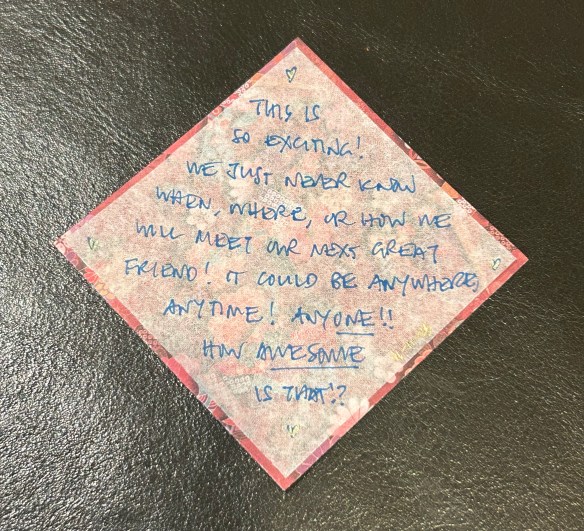 THIS IS
SO EXCITING!
WE JUST NEVER KNOW
WHEN, WHERE, OR HOW WE
WILL MEET OUR NEXT GREAT
FRIEND! IT COULD BE ANYWHERE,
ANYTIME! ANYONE!!
HOW AWESOME
IS THAT!?